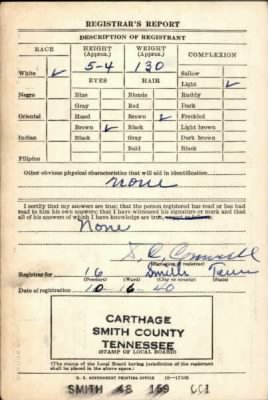 REGISTRAR'S REPORT
DESCRIPTION OF REGISTRANT
RACE HEIGHT (Approx.) WEIGHT (Approx.) COMPLEXION
White ✓ 5-4 130 Sallow
EYES HAIR Light ✓
Negro Blue Blonde Ruddy
Gray Red Dark
Oriental Hazel Brown ✓ Freckled
Brown ✓ Black Light brown
Indian Black Gray Dark brown
Bald Black
Filipino
Other obvious physical characteristics that will aid in identification
None
I certify that my answers are true; that the person registered has read or has had
read to him his own answers; that I have witnessed his signature or mark and that
all of his answers of which I have knowledge are true, except as follows:
None
(Signature of registrar)
Registrar for 16 Smith Tenn
(Precinct) (Ward) (City or county) (State)
Date of registration 10-16-40
CARTHAGE
SMITH COUNTY
TENNESSEE
(STAMP OF LOCAL BOARD)
(The stamp of the Local Board having jurisdiction of the registrant
shall be placed in the above space.)
U. S. GOVERNMENT PRINTING OFFICE
SMITH 48 159 001